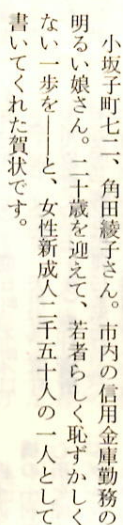 小坂子町七二、角田綾子さん。市内の信用金庫勤務の
明るい娘さん。二十歳を迎えて、若者らしく恥ずかしく
ない一歩を――と、女性新成人二千五十人の一人として
書いてくれた賀状です。